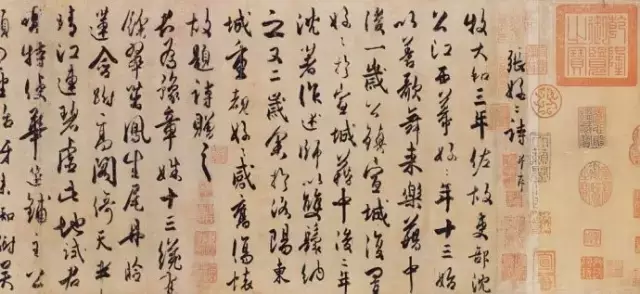 乾隆御覽之寶
張好〻詩 并序
牧大和三年佐故吏部沈
公江西幕好〻年十三始
以善歌舞來樂籍中
後一歲公鎮宣城復置
好〻於宣城籍中後二年
沈著作述師以雙鬟納
之又二歲余於洛陽東
城重覩好〻感舊傷懷
故題詩贈之
君為豫章姝十三纔有
餘翠茁鳳生尾丹臉
蓮含跗高閣倚天半
晴江連碧虛此地試君
唱特使華筵鋪主公
顧四座始訝來踟躕吳